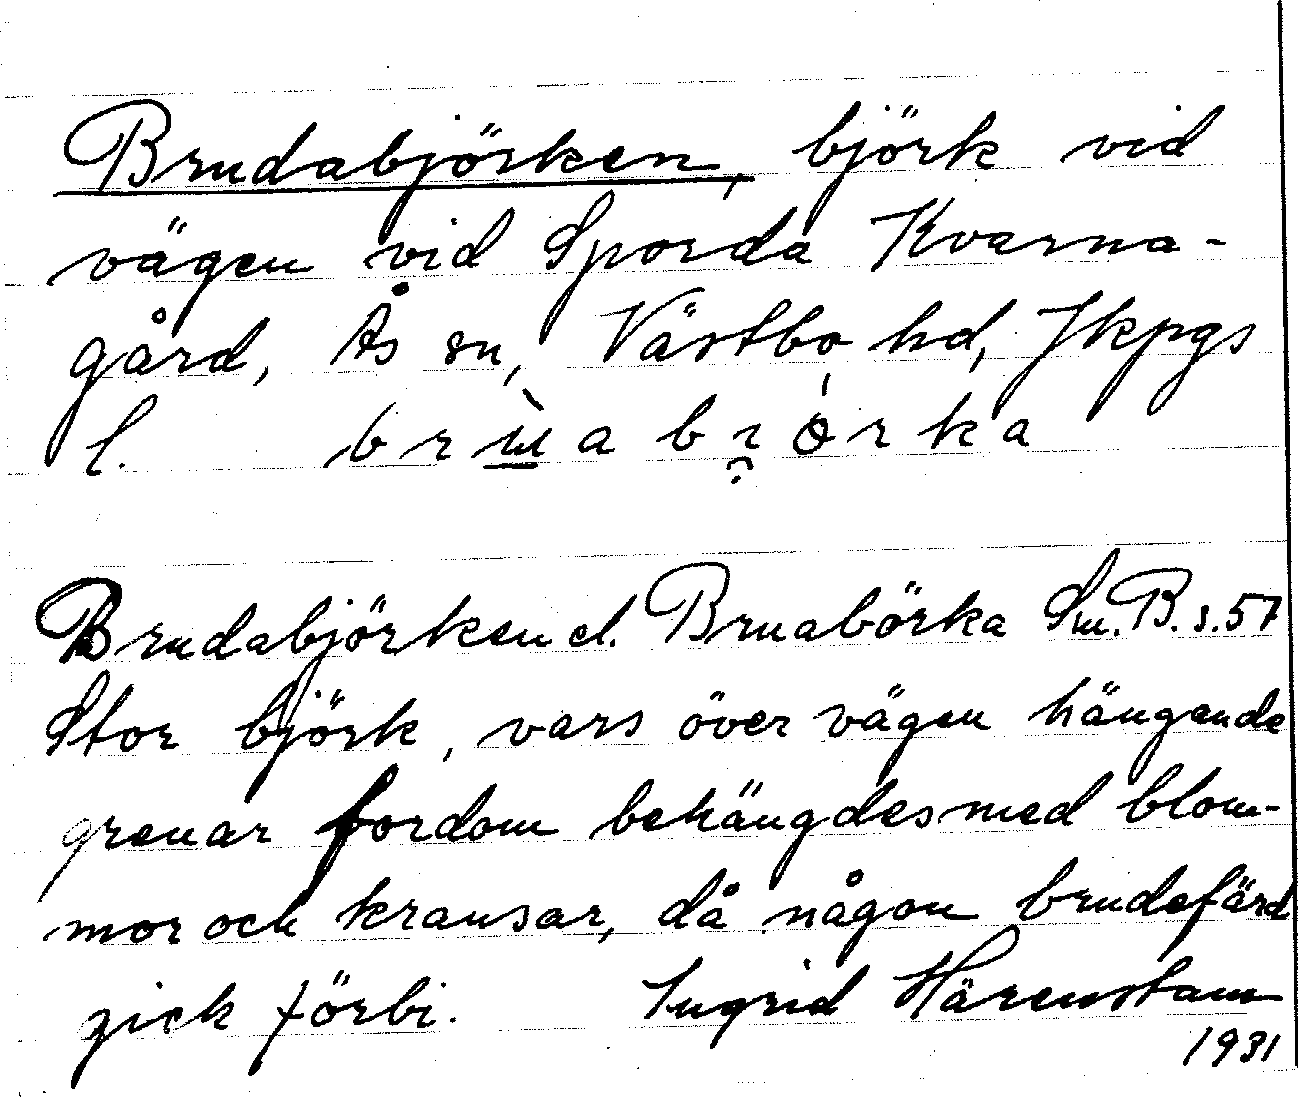 Brudabjörken, björk vid
vägen vid Sporda Kvarna-
gård, Ås sn, Västbo hd, Jkpgs
l. brɯ̀abi̯órka
Brudabjörken el. Bruabörka Sm. B. s. 57
Stor björk, vars över vägen hängande
grenar fordom behängdes med blom-
mor och kransar, då någon brudefärd
gick förbi. Ingrid Härenstam
1931